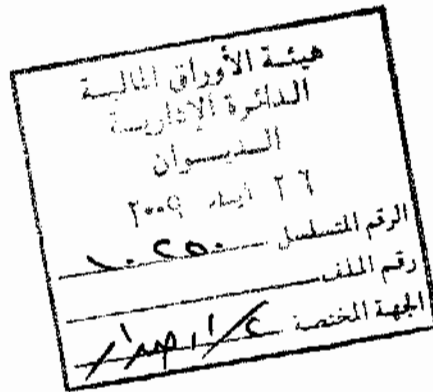 هيئة الأوراق المالية
الدائرة الإدارية
الديوان
٢٦ ٢٠٠٩
الرقم المتسلسل ١٠٢٥٠
رقم الملف
الجهة المختصة